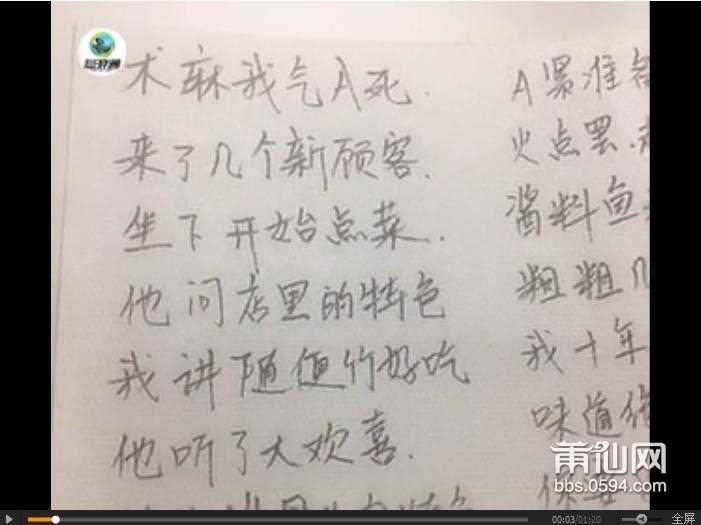 术麻我气A死.
来了几个新顾客.
坐下开始点菜.
他问店里的特色
我讲随便竹好吃
他听了大欢喜.
A紧准备
火点罢.
酱料鱼
粗粗几
我十年
味道
莆仙网
bbs.0594.com
00:03/01:20
全屏